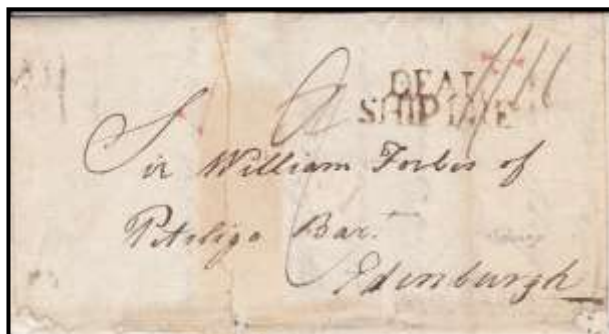 DEAL
SHIP LRE
Sir William Forbes of
Pitsligo Bar.
Edinburgh